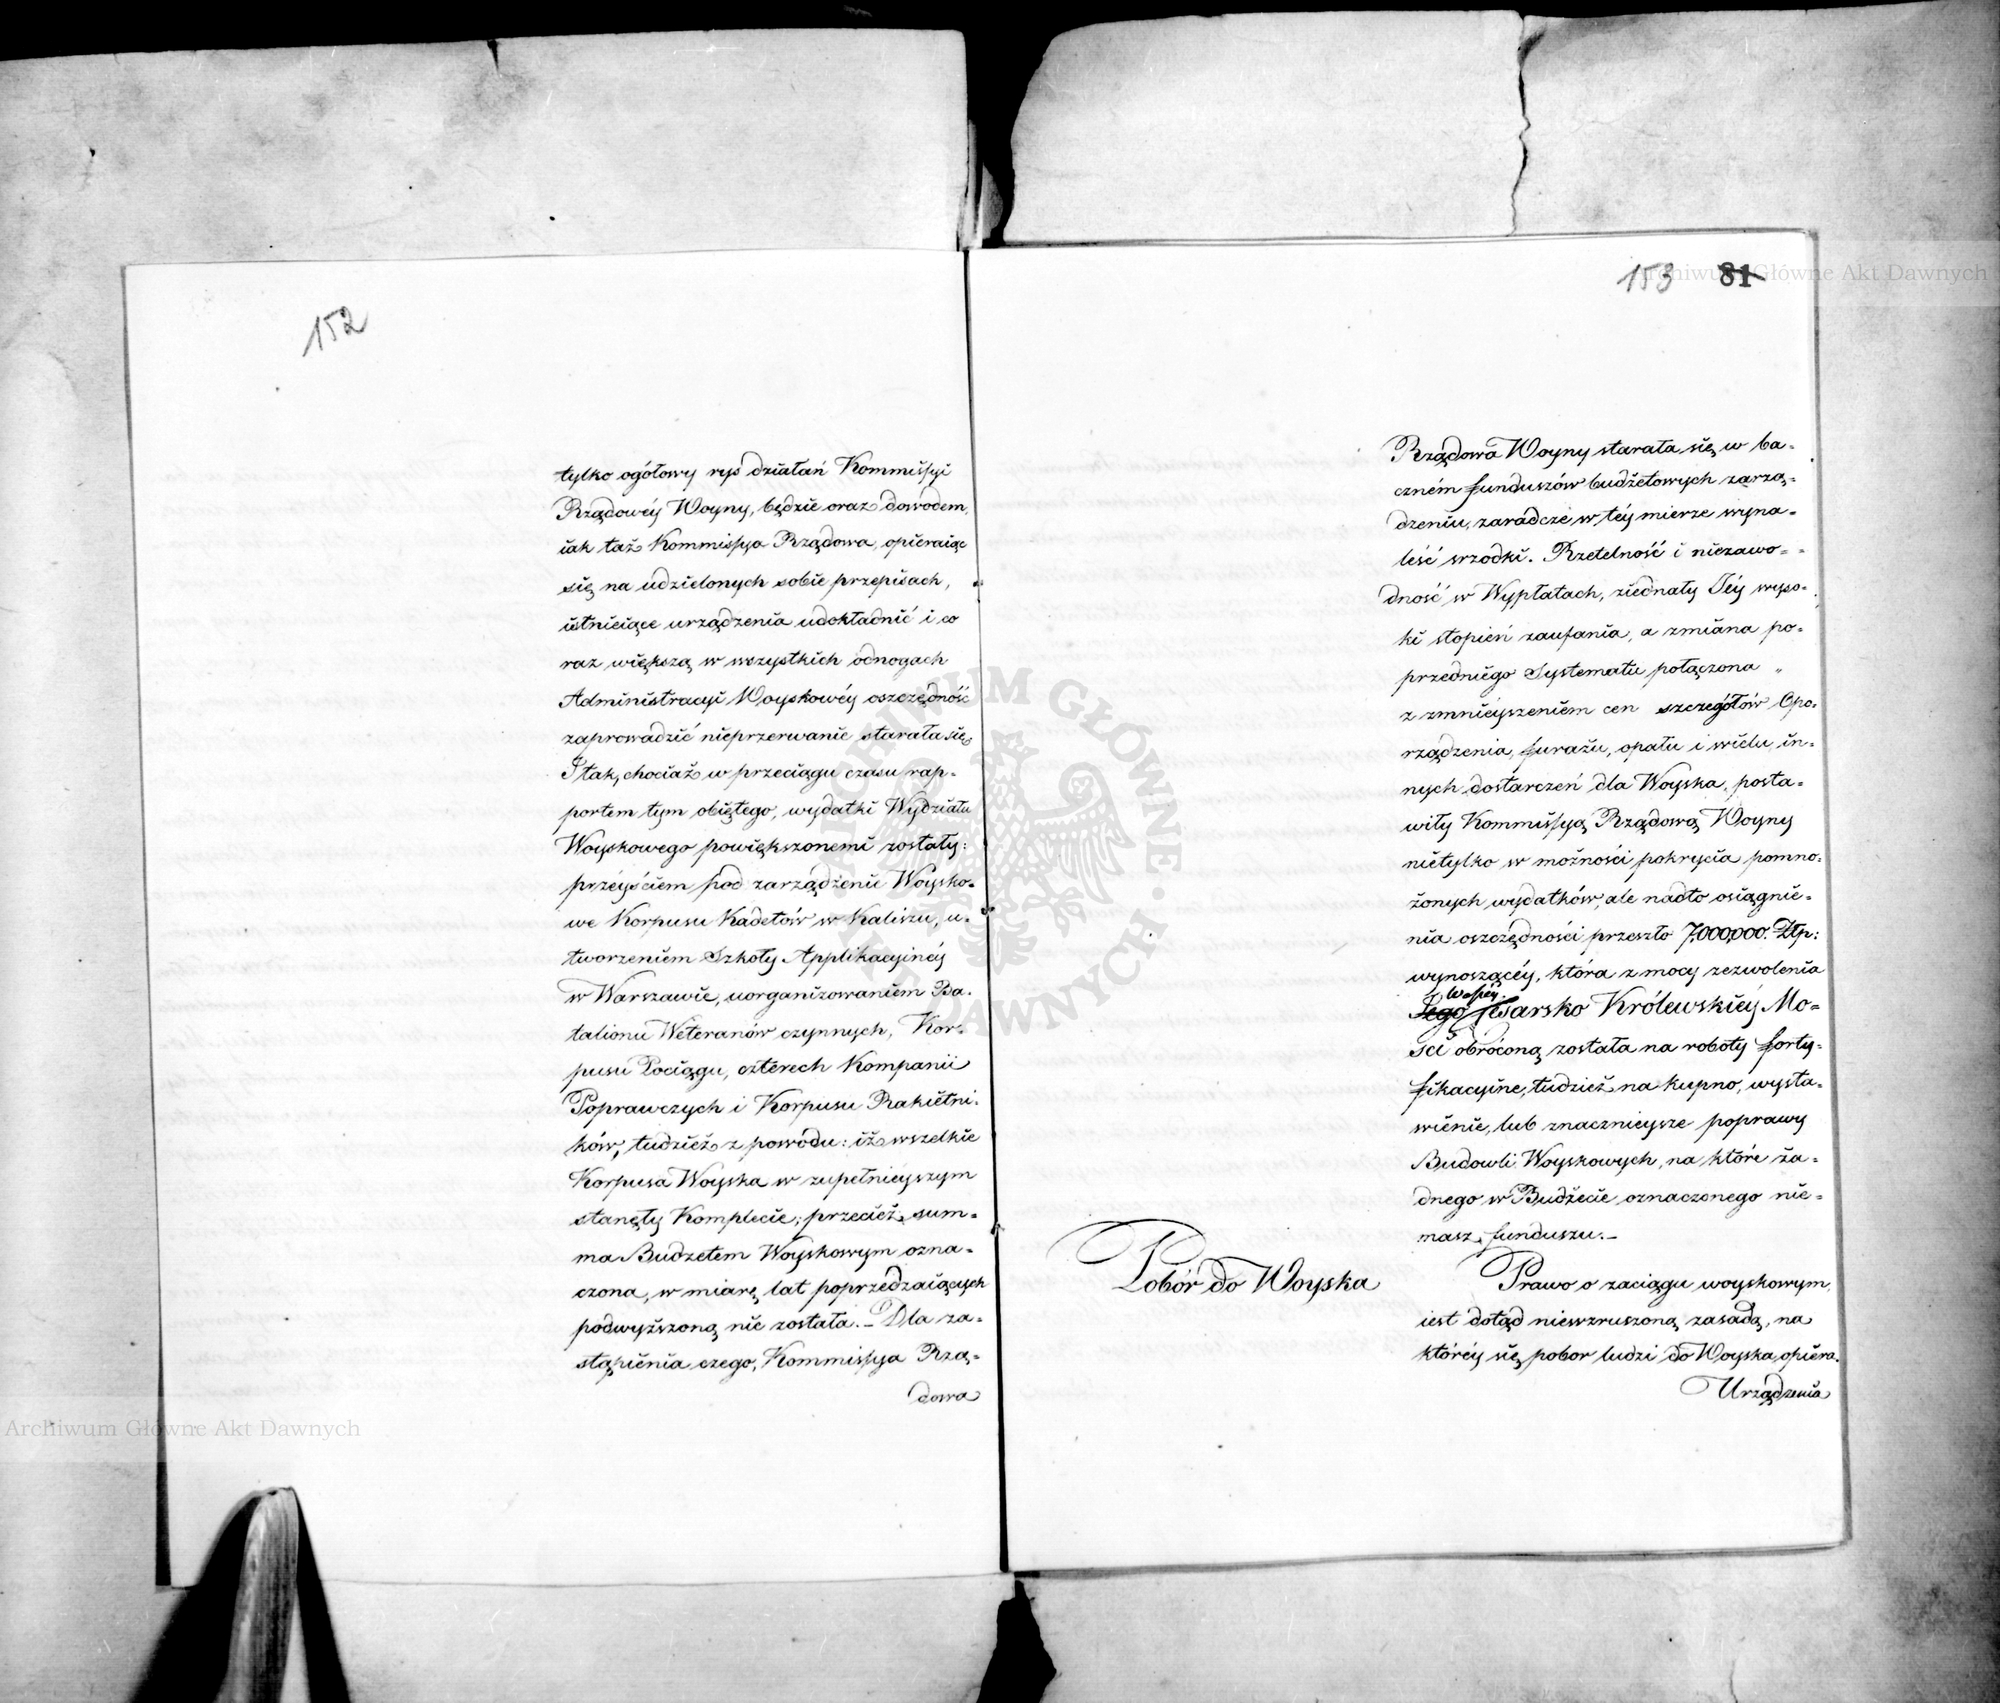 152
tylko ogółowy rys działań Kommissyi
Rządowéy Woyny, będzie oraz dowodem,
iak taż Kommissya Rządowa, opieraiąc
się na udzielonych sobie przepisach,
istnieiące urządzenia udokładnić i co
raz większą w wszystkich odnogach
Administracyi Woyskowéy oszczędność
zaprowadzić nieprzerwanie starała się.
I tak, chociaż w przeciągu czasu rap-
portem tym obiętego, wydatki Wydziału
Woyskowego powiększonemi zostały:
prześciem pod zarządzenie Woysko-
we Korpusu Kadetów w Kaliszu, u-
tworzeniem Szkoły Applikacyinéy
w Warszawie, uorganizowaniem Ba-
talionu Weteranów czynnych, Kor-
pusu Pociągu, czterech Kompanii
Poprawczych i Korpusu Rakietni-
ków, tudzież z powodu: iż wszelkie
Korpusa Woyska w zupełnieyszym
stanęły Komplecie; przecież sum-
ma Budżetem Woyskowym ozna-
czona, w miarę lat poprzedzaiących
podwyższoną nie została. _ Dla za-
stąpienia czego, Kommissya Rzą-
dowa
153 81
Rządowa Woyny starała się w ba-
czném funduszów budżetowych zarzą-
dzeniu, zaradcze w téy mierze wyna-
leść srzodki. Rzetelność i niezawo-
dność w Wypłatach, ziednały Jéy wyso-
ki stopień zaufania, a zmiana po-
przedniego Systematu połączona "
z zmnieyszeniem cen szczegółów Opo-
rządzenia, furażu, opału i wielu in-
nych dostarczeń dla Woyska, posta-
wiły Kommissyą Rządową Woyny
nietylko w możności pokrycia pomno-
żonych wydatków, ale nadto osiągnie-
nia oszczędności przeszło 7,000,000. Złp:
wynoszącéy, która z mocy zezwolenia
Waszéy
Jego Cesarsko Królewskiéy Mo-
ści obróconą została na roboty forty-
fikacyine, tudzież na kupno, wysta-
wienie, lub znacznieysze poprawy
Budowli Woyskowych, na które ża-
dnego w Budżecie oznaczonego nie-
masz funduszu. _
Pobór do Woyska
Prawo o zaciągu woyskowym,
iest dotąd niewzruszoną zasadą, na
któréy się pobor ludzi do Woyska opiera.
Urządzenia
Archiwum Główne Akt Dawnych
Archiwum Główne Akt Dawnych
ARCHIWUM GŁÓWNE AKT DAWNYCH